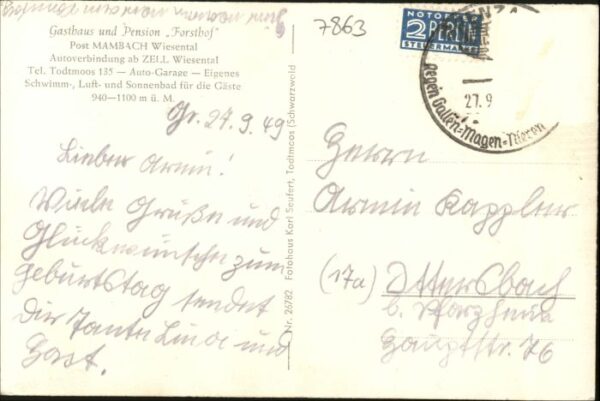 7863
Gasthaus und Pension „Forsthof"
Post MAMBACH Wiesental
Autoverbindung ab ZELL Wiesental
Tel. Todtmoos 135 — Auto-Garage — Eigenes
Schwimm-, Luft- und Sonnenbad für die Gäste
940—1100 m ü. M.
Gr. 27.9.49
Lieber Armin!
Viele Grüße und
Glückwünsche zum
Geburtstag sendet
Dir Tante Lina und
Gast.
Nr. 26782 Fotohaus Karl Seufert, Todtmoos (Schwarzwald)
NOTOPFER
2 BERLIN
STEUERMARKE
27.9
Gegen Gallen=Magen=Nieren
Herrn
Armin Kappler
(17a) Ittersbach
b. Pforzheim
Hauptstr. 76